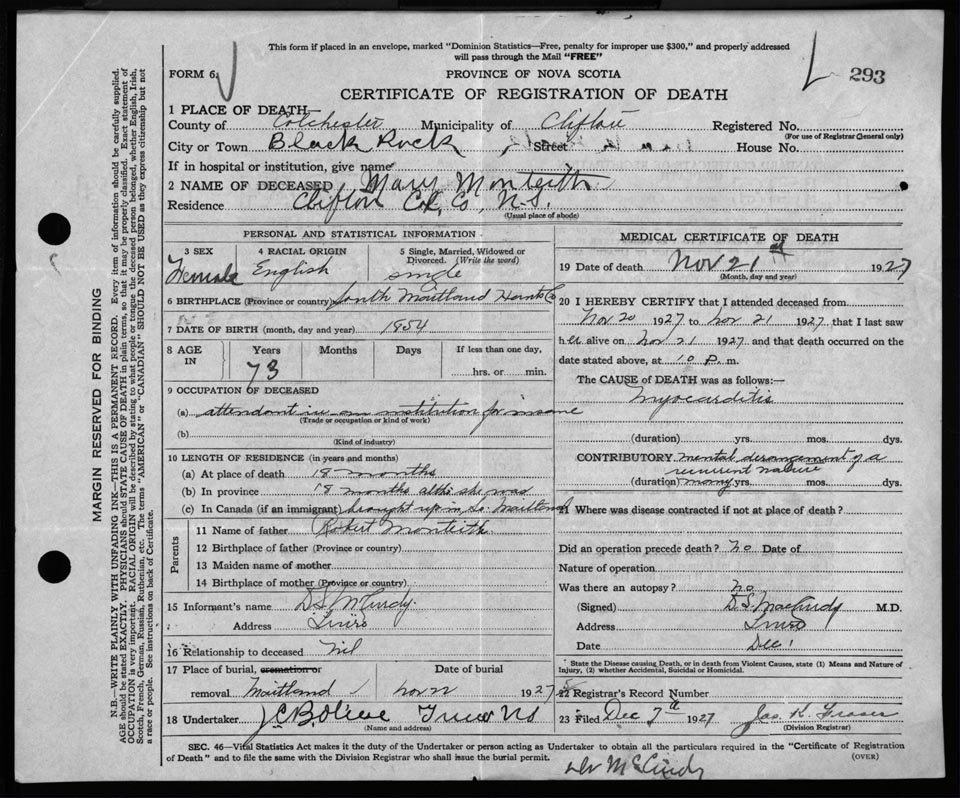 This form if placed in an envelope, marked "Dominion Statistics—Free, penalty for improper use $300," and properly addressed
will pass through the Mail "FREE"
FORM 6.
PROVINCE OF NOVA SCOTIA
293
CERTIFICATE OF REGISTRATION OF DEATH
1 PLACE OF DEATH—
County of Colchester Municipality of Clifton Registered No.
(For use of Registrar General only)
City or Town Black Rock Street House No.
If in hospital or institution, give name
2 NAME OF DECEASED Mary Monteith
Residence Clifton Col. Co, N.S.
(Usual place of abode)
PERSONAL AND STATISTICAL INFORMATION
3 SEX 4 RACIAL ORIGIN 5 Single, Married, Widowed or Divorced. (Write the word)
Female English single
6 BIRTHPLACE (Province or country) South Maitland Hants Co
7 DATE OF BIRTH (month, day and year) 1854
8 AGE IN Years Months Days If less than one day,
73 hrs. or min.
9 OCCUPATION OF DECEASED
(a) attendant in an institution for insane
(Trade or occupation or kind of work)
(b)
(Kind of industry)
10 LENGTH OF RESIDENCE (in years and months)
(a) At place of death 18 months
(b) In province 18 months altho she was
(c) In Canada (if an immigrant) brought up in So. Maitland
Parents
11 Name of father Robert Monteith
12 Birthplace of father (Province or country)
13 Maiden name of mother
14 Birthplace of mother (Province or country)
15 Informant's name D.S. McCurdy.
Address Truro
16 Relationship to deceased nil
17 Place of burial, cremation or Date of burial
removal Maitland Nov 1927
18 Undertaker Truro NS
(Name and address)
MEDICAL CERTIFICATE OF DEATH
19 Date of death Nov 21 1927
(Month, day and year)
20 I HEREBY CERTIFY that I attended deceased from
Nov 20 1927 to Nov 21 1927 that I last saw
her alive on Nov 21 1927 and that death occurred on the
date stated above, at 10 P. m.
The CAUSE of DEATH was as follows:—
Myocarditis
(duration) yrs. mos. dys.
CONTRIBUTORY mental derangement of a
recurrent nature
(duration) many yrs. mos. dys.
21 Where was disease contracted if not at place of death?
Did an operation precede death? no Date of
Nature of operation
Was there an autopsy? no
(Signed) D.S. MacCurdy M.D.
Address Truro
Date Dec 1
State the Disease causing Death, or in death from Violent Causes, state (1) Means and Nature of
Injury, (2) whether Accidental, Suicidal or Homicidal.
22 Registrar's Record Number
23 Filed Dec 7 1927 Jas. K. Fraser
(Division Registrar)
SEC. 46—Vital Statistics Act makes it the duty of the Undertaker or person acting as Undertaker to obtain all the particulars required in the "Certificate of Registration
of Death" and to file the same with the Division Registrar who shall issue the burial permit.
(OVER)
Dr McCurdy
MARGIN RESERVED FOR BINDING
N.B.—WRITE PLAINLY WITH UNFADING INK—THIS IS A PERMANENT RECORD. Every item of information should be carefully supplied.
AGE should be stated EXACTLY. PHYSICIANS should STATE CAUSE OF DEATH in plain terms, so that it may be properly classified. Exact statement of
OCCUPATION is very important. RACIAL ORIGIN will be described by stating to what people or tongue the deceased person belonged, whether English, Irish,
Scotch, French, German, Russian, Ruthenian, etc. The terms "AMERICAN" or "CANADIAN" SHOULD NOT BE USED as they express citizenship but not
a race or people. See instructions on back of Certificate.